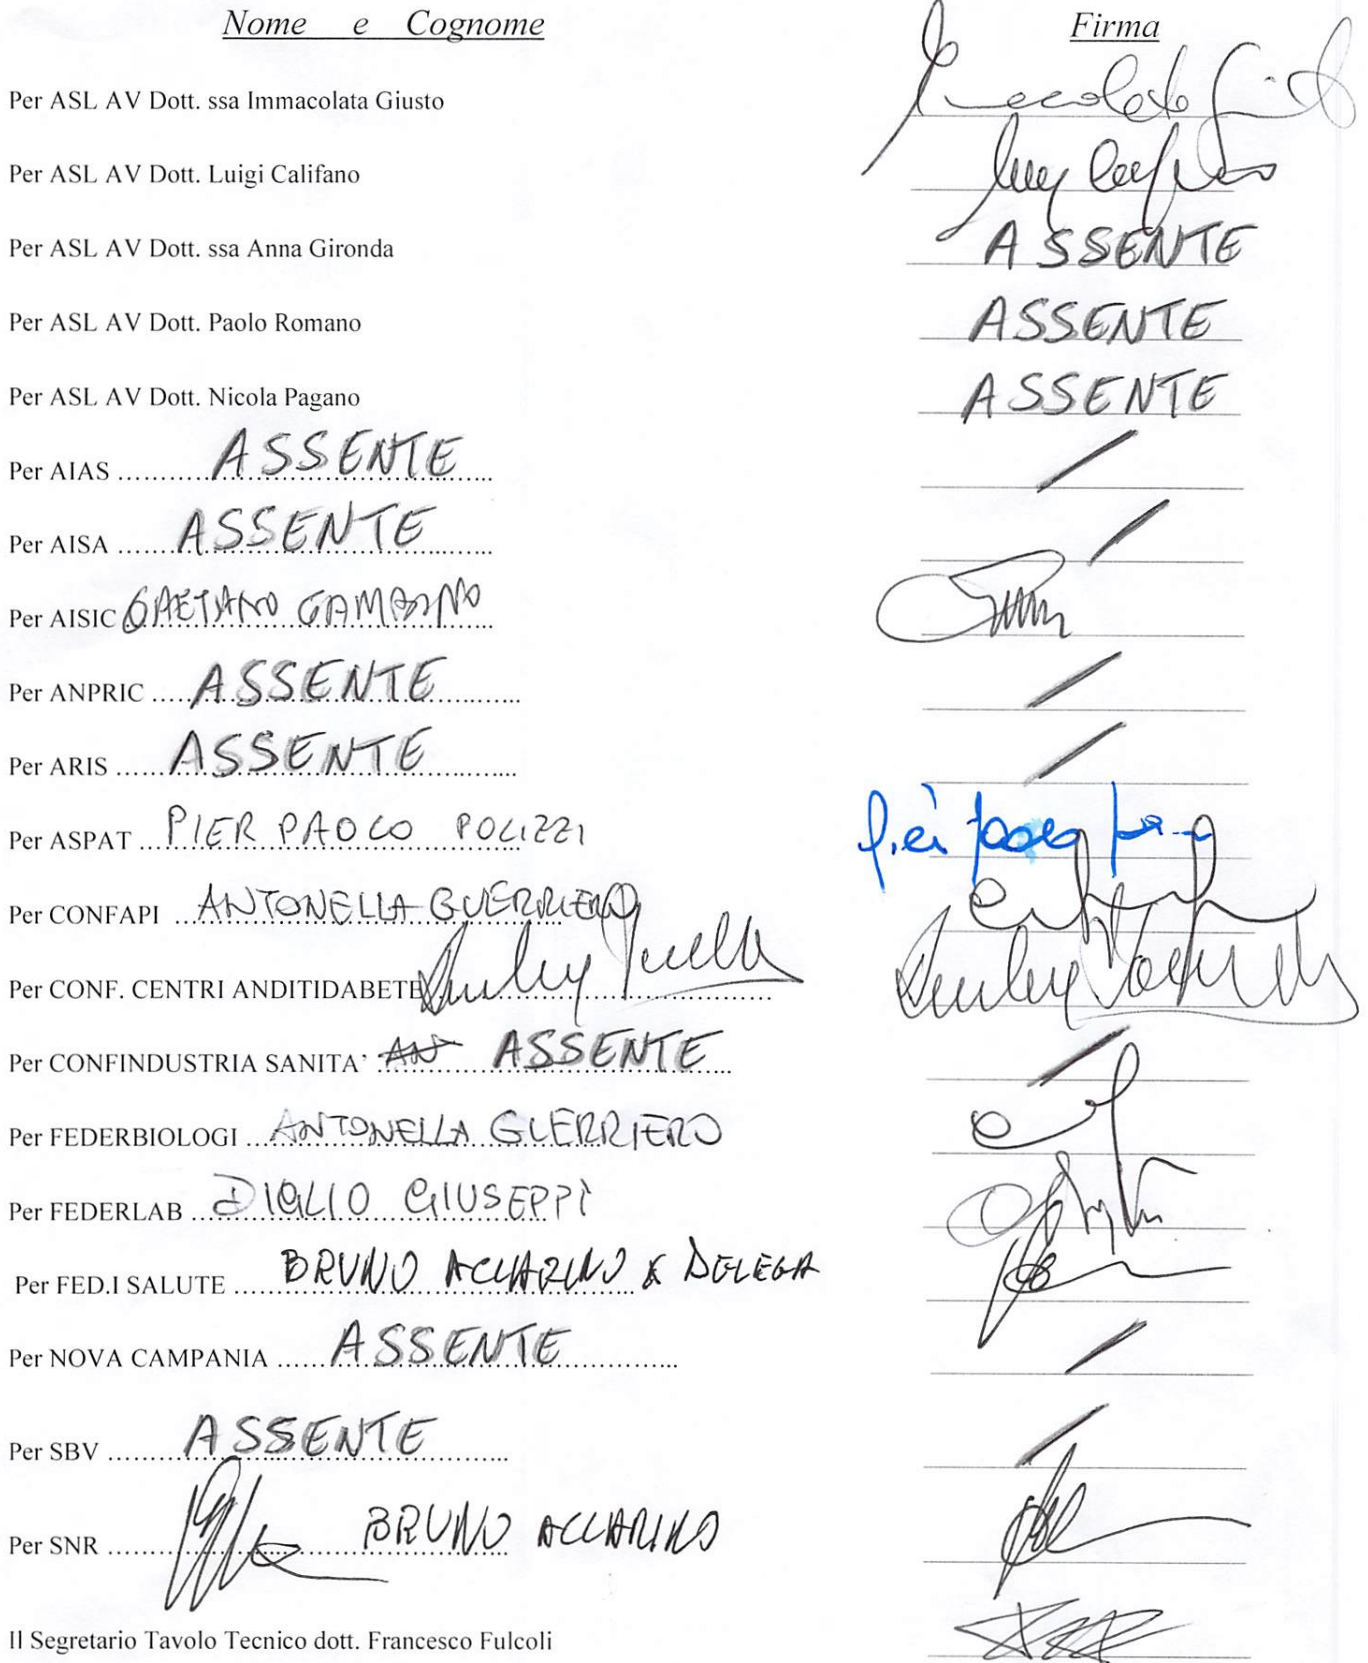 Nome e Cognome Firma
Per ASL AV Dott. ssa Immacolata Giusto
Per ASL AV Dott. Luigi Califano
Per ASL AV Dott. ssa Anna Gironda ASSENTE
Per ASL AV Dott. Paolo Romano ASSENTE
Per ASL AV Dott. Nicola Pagano ASSENTE
Per AIAS ASSENTE /
Per AISA ASSENTE /
Per AISIC GAETANO
Per ANPRIC ASSENTE /
Per ARIS ASSENTE /
Per ASPAT PIER PAOLO POLIZZI
Per CONFAPI ANTONELLA GUERRIERO
Per CONF. CENTRI ANDITIDABETE
Per CONFINDUSTRIA SANITA' ASSENTE /
Per FEDERBIOLOGI ANTONELLA GUERRIERO
Per FEDERLAB DIGLIO GIUSEPPÌ
Per FED.I SALUTE BRUNO ACCARINO X DELEGA
Per NOVA CAMPANIA ASSENTE /
Per SBV ASSENTE /
Per SNR BRUNO ACCARINO
Il Segretario Tavolo Tecnico dott. Francesco Fulcoli